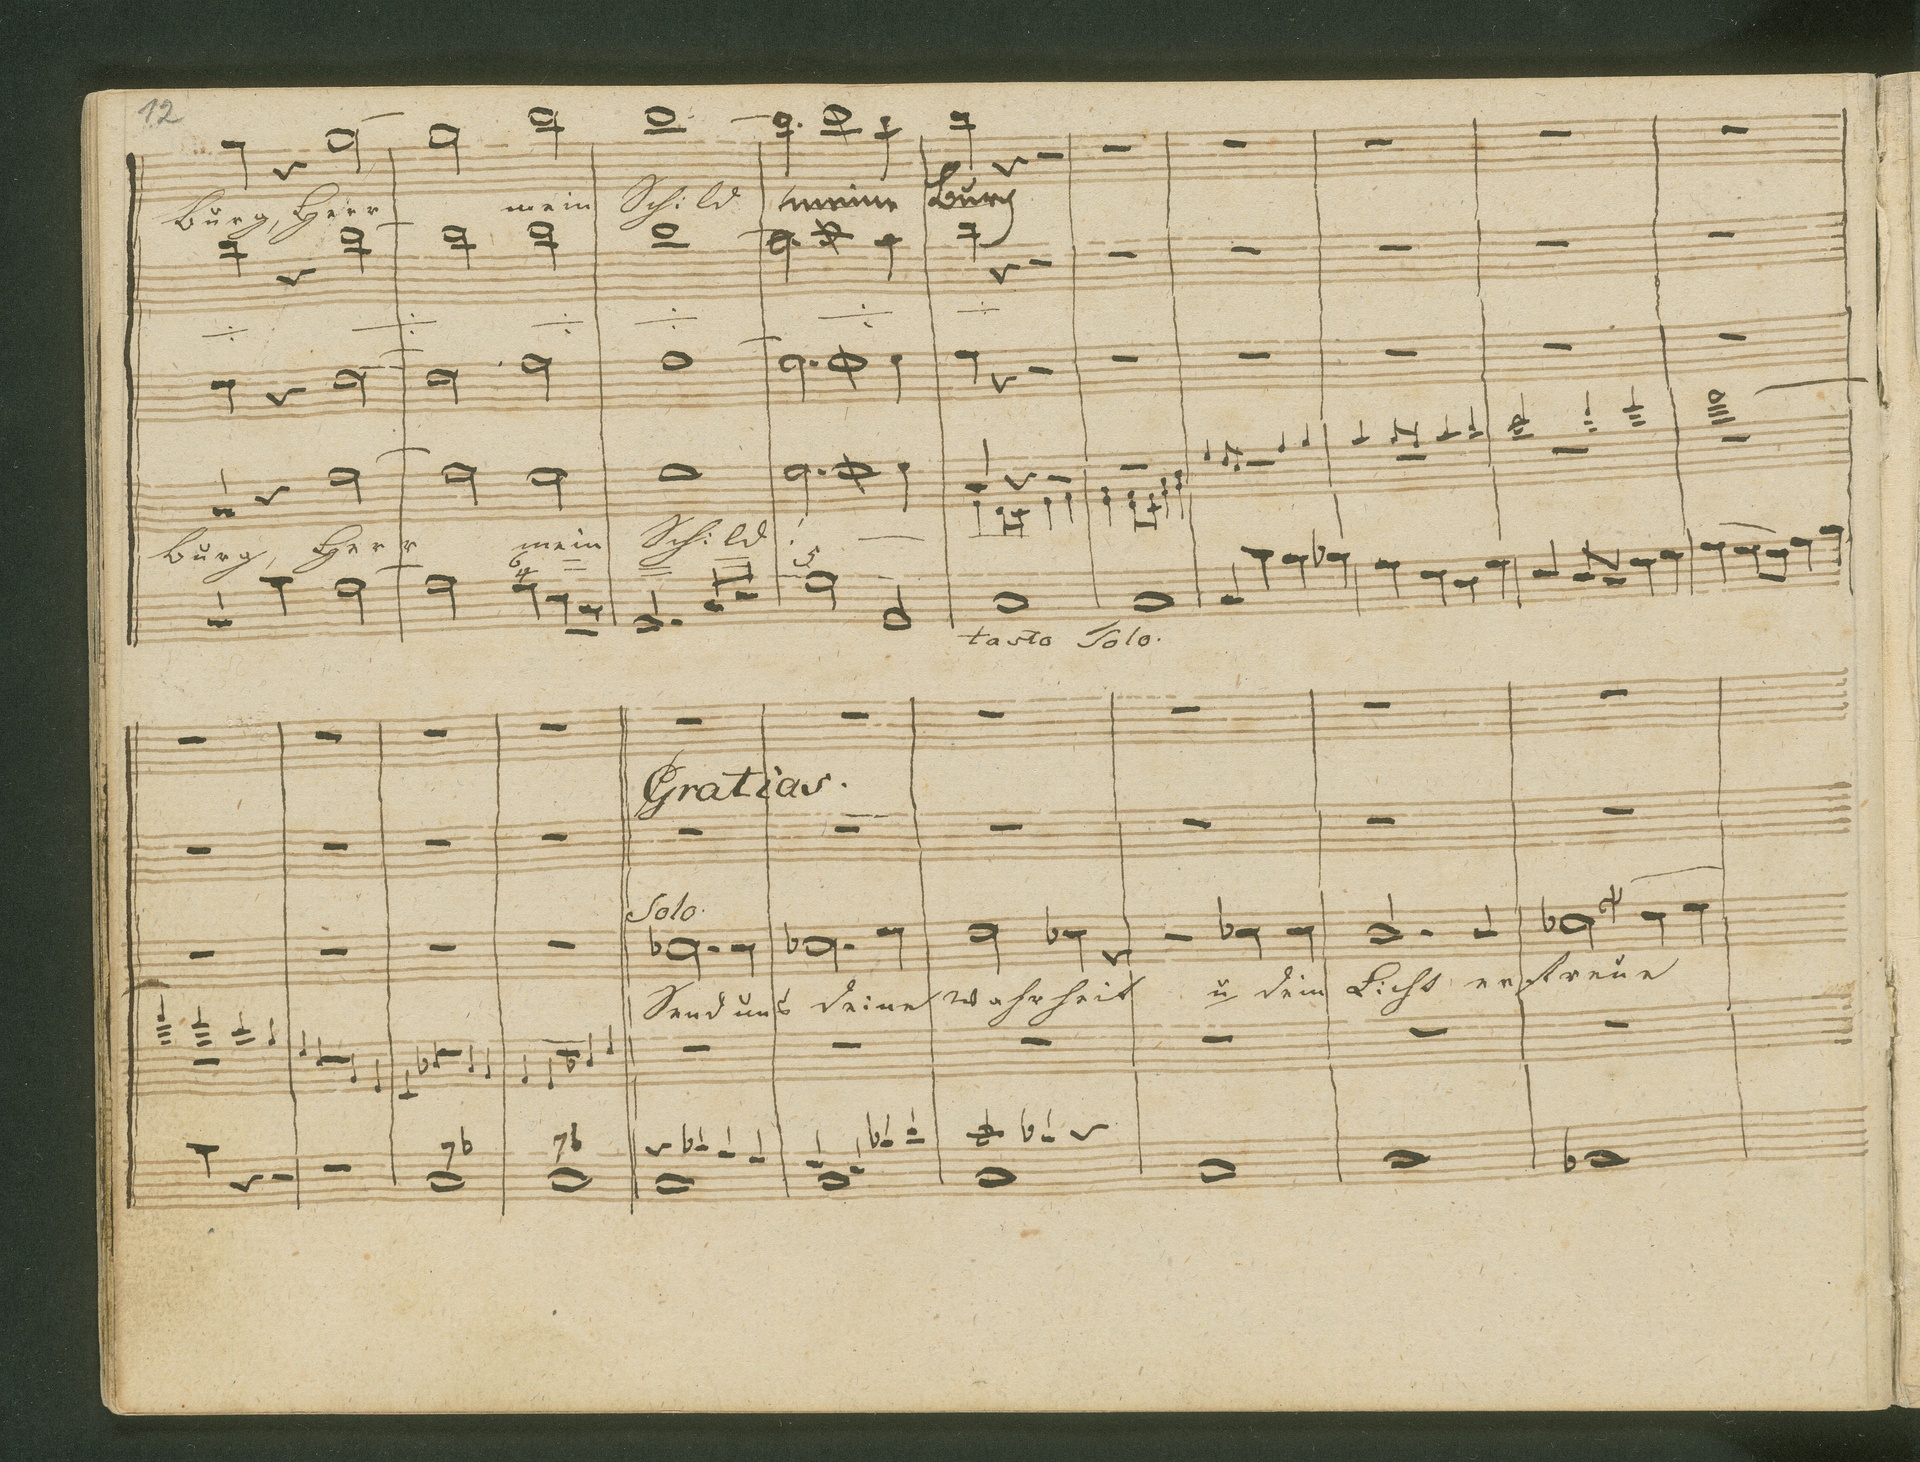 12
Burg, Herr mein Schild meine Burg
Burg, Herr mein Schild
6 4 5
tasto Solo.
Gratias.
Solo.
Send uns deine Wahrheit u dein Licht erfreue
7b 7b